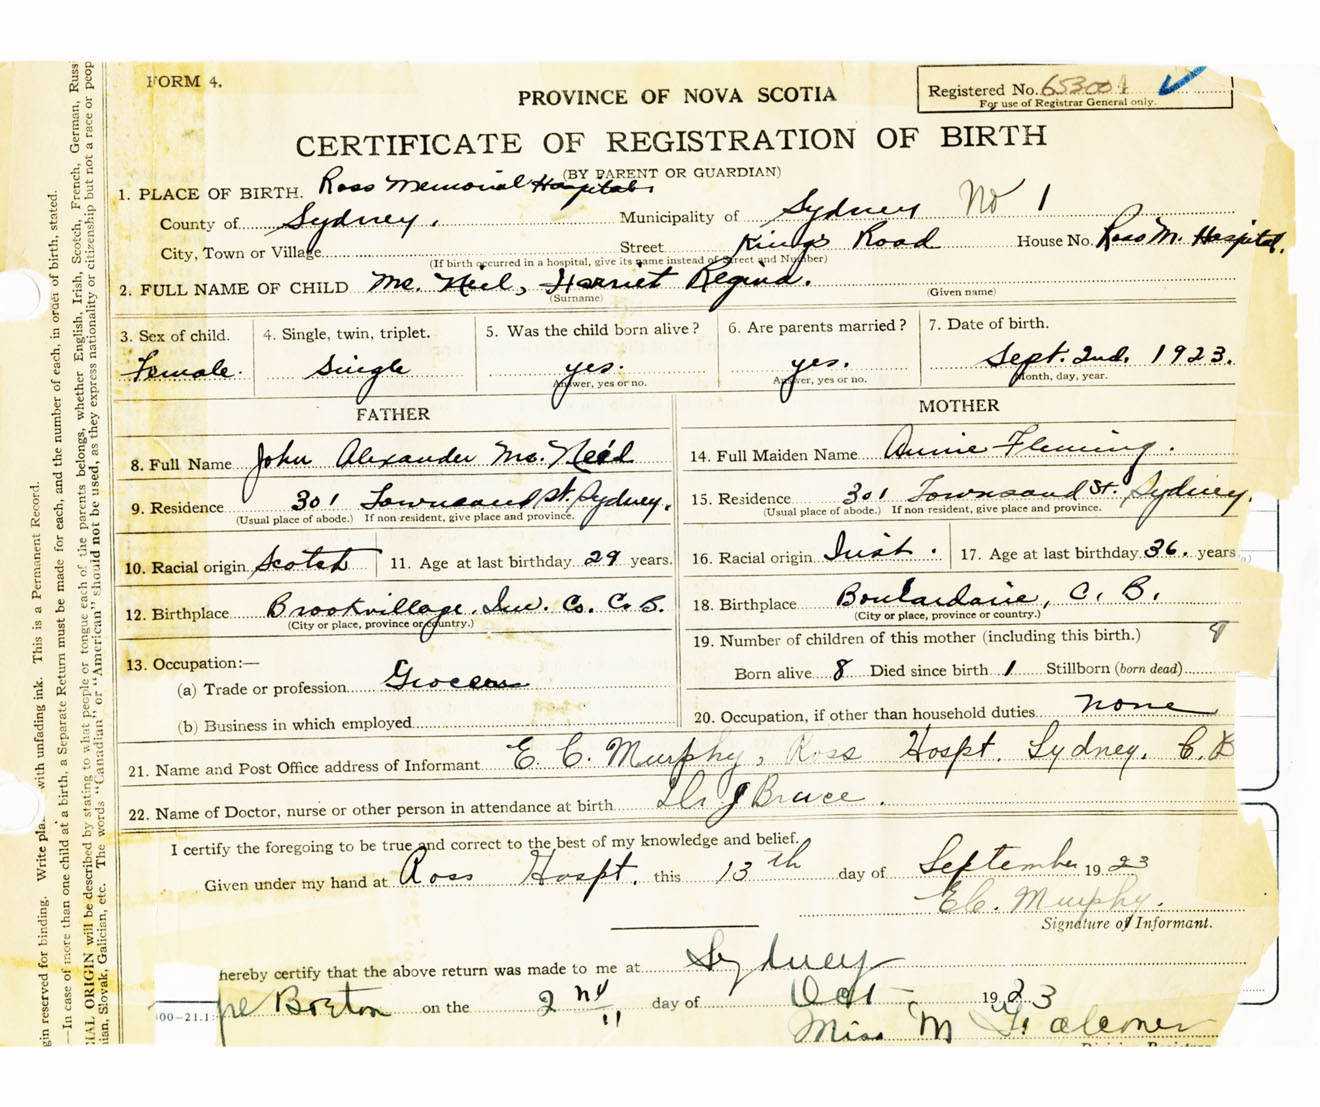 FORM 4.
Registered No. 65300
For use of Registrar General only.
PROVINCE OF NOVA SCOTIA
CERTIFICATE OF REGISTRATION OF BIRTH
(BY PARENT OR GUARDIAN)
1. PLACE OF BIRTH. Ross Memorial Hospital
County of Sydney. Municipality of Sydney No 1
City, Town or Village Street Kings Road House No. Ross M. Hospital.
(If birth occurred in a hospital, give its name instead of Street and Number)
2. FULL NAME OF CHILD Mc. Neil, Harriet Regina.
(Surname) (Given name)
3. Sex of child. 4. Single, twin, triplet. 5. Was the child born alive? 6. Are parents married? 7. Date of birth.
Female. Single yes. yes. Sept. 2nd. 1923.
Answer, yes or no. Answer, yes or no. Month, day, year.
FATHER MOTHER
8. Full Name John Alexander Mc. Neil 14. Full Maiden Name Annie Fleming.
9. Residence 301 Townsand St. Sydney. 15. Residence 301 Townsand St. Sydney.
(Usual place of abode.) If non-resident, give place and province. (Usual place of abode.) If non-resident, give place and province.
10. Racial origin Scotch 11. Age at last birthday 29 years. 16. Racial origin Irish. 17. Age at last birthday 36. years
12. Birthplace Brookvillage. Inv. Co. C. B. 18. Birthplace Boulardarie, C. B.
(City or place, province or country.) (City or place, province or country.)
19. Number of children of this mother (including this birth.) 8
13. Occupation:—
Born alive 8 Died since birth 1 Stillborn (born dead)
(a) Trade or profession
(b) Business in which employed 20. Occupation, if other than household duties none
21. Name and Post Office address of Informant E. C. Murphy, Ross Hospt. Sydney. C. B
22. Name of Doctor, nurse or other person in attendance at birth Dr J Bruce.
I certify the foregoing to be true and correct to the best of my knowledge and belief.
Given under my hand at Ross Hospt. this 13th day of September 1923
E C. Murphy.
Signature of Informant.
hereby certify that the above return was made to me at Sydney
pe Breton on the 2nd day of Oct 1923
Miss M Falconer
00—21.1
gin reserved for binding. Write pla with unfading ink. This is a Permanent Record.
—In case of more than one child at a birth, a Separate Return must be made for each, and the number of each, in order of birth, stated.
IAL ORIGIN will be described by stating to what people or tongue each of the parents belongs, whether English, Irish, Scotch, French, German, Russ
ian, Slovak, Galician, etc. The words "Canadian" or "American" should not be used, as they express nationality or citizenship but not a race or peop